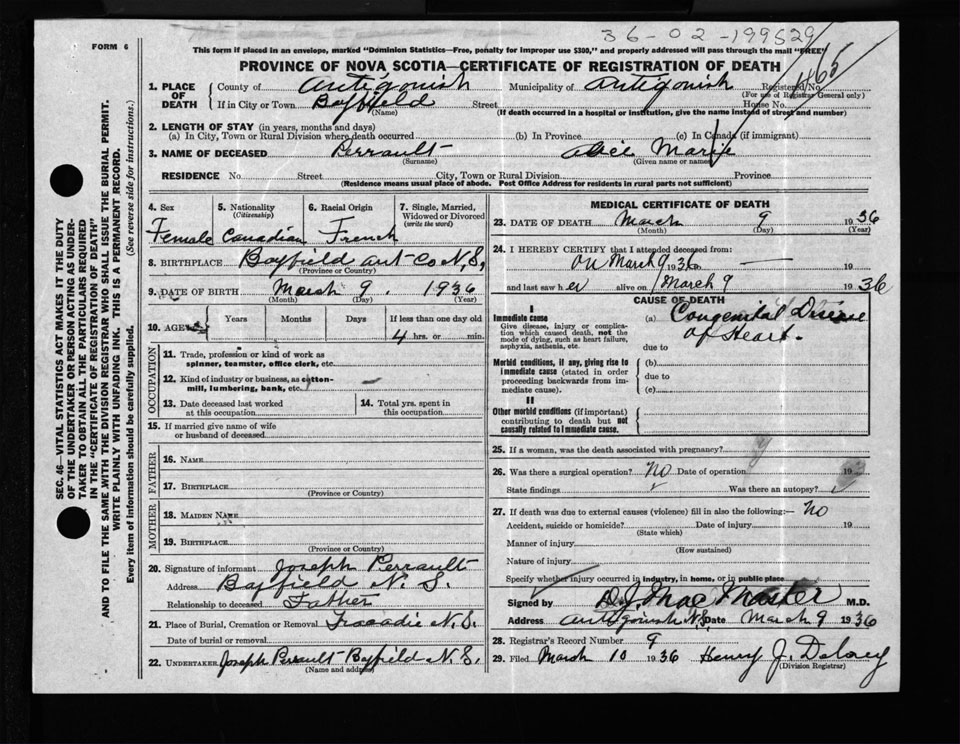 36-02-199529
FORM 6
This form if placed in an envelope, marked "Dominion Statistics—Free, penalty for improper use $300," and properly addressed will pass through the mail "FREE"
PROVINCE OF NOVA SCOTIA—CERTIFICATE OF REGISTRATION OF DEATH
1. PLACE OF DEATH
County of Antigonish Municipality of Antigonish Registered No.
(For use of Registrar General only)
If in City or Town Bayfield Street House No.
(Name) (If death occurred in a hospital or institution, give the name instead of street and number)
2. LENGTH OF STAY (in years, months and days)
(a) In City, Town or Rural Division where death occurred (b) In Province (c) In Canada (if immigrant)
3. NAME OF DECEASED Perrault Alice Marie
(Surname) (Given name or names)
RESIDENCE No. Street City, Town or Rural Division Province
(Residence means usual place of abode. Post Office Address for residents in rural parts not sufficient)
4. Sex
Female
5. Nationality
(Citizenship)
Canadian
6. Racial Origin
French
7. Single, Married, Widowed or Divorced
(write the word)
8. BIRTHPLACE Bayfield Ant. Co N.S.
(Province or Country)
9. DATE OF BIRTH March 9. 1936
(Month) (Day) (Year)
10. AGE
Years Months Days If less than one day old
4 hrs. or min.
OCCUPATION
11. Trade, profession or kind of work as
spinner, teamster, office clerk, etc.
12. Kind of industry or business, as cotton-
mill, lumbering, bank, etc. —
13. Date deceased last worked
at this occupation
14. Total yrs. spent in
this occupation
15. If married give name of wife
or husband of deceased
FATHER
16. NAME
17. BIRTHPLACE
(Province or Country)
MOTHER
18. MAIDEN NAME
19. BIRTHPLACE
(Province or Country)
20. Signature of informant Joseph Perrault
Address Bayfield N. S.
Relationship to deceased Father
21. Place of Burial, Cremation or Removal Tracadie N.S.
Date of burial or removal
22. UNDERTAKER Joseph Perrault Bayfield N.S.
(Name and address)
MEDICAL CERTIFICATE OF DEATH
23. DATE OF DEATH March 9 1936
(Month) (Day) (Year)
24. I HEREBY CERTIFY that I attended deceased from:
On March 9 1936 — 19
and last saw her alive on March 9 1936
CAUSE OF DEATH
I
Immediate cause
Give disease, injury or complication which caused death, not the mode of dying, such as heart failure, asphyxia, asthenia, etc.
(a) Congenital Disease
of Heart.
due to
Morbid conditions, if any, giving rise to immediate cause (stated in order proceeding backwards from immediate cause).
(b)
due to
(c)
II
Other morbid conditions (if important) contributing to death but not causally related to immediate cause.
25. If a woman, was the death associated with pregnancy?
26. Was there a surgical operation? No Date of operation 19
State findings Was there an autopsy?
27. If death was due to external causes (violence) fill in also the following:— No
Accident, suicide or homicide? Date of injury 19
(State which)
Manner of injury
(How sustained)
Nature of injury
Specify whether injury occurred in industry, in home, or in public place
Signed by D. J. MacMaster M.D.
Address Antigonish N.S. Date March 9 1936
28. Registrar's Record Number 9
29. Filed March 10 1936 Henry J. Delorey
(Division Registrar)
SEC. 46—VITAL STATISTICS ACT MAKES IT THE DUTY
OF THE UNDERTAKER OR PERSON ACTING AS UNDER-
TAKER TO OBTAIN ALL THE PARTICULARS REQUIRED
IN THE "CERTIFICATE OF REGISTRATION OF DEATH"
AND TO FILE THE SAME WITH THE DIVISION REGISTRAR WHO SHALL ISSUE THE BURIAL PERMIT.
WRITE PLAINLY WITH UNFADING INK. THIS IS A PERMANENT RECORD.
Every item of information should be carefully supplied. (See reverse side for instructions.)